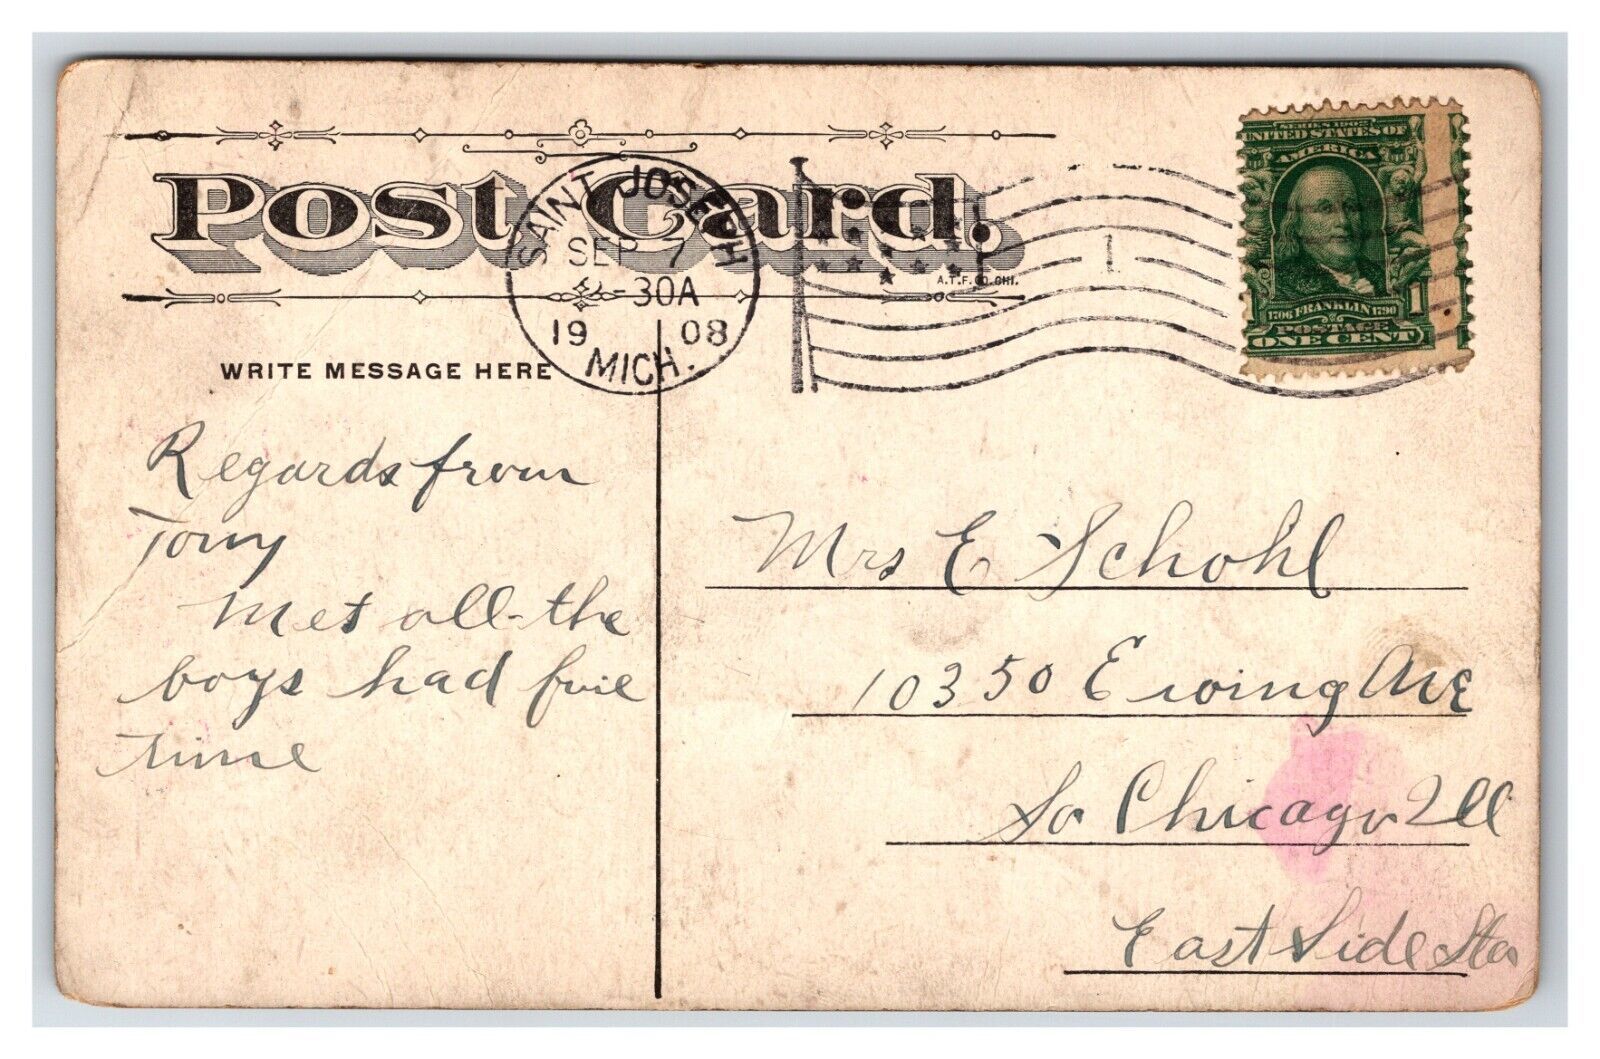 Post Card.
SAINT JOSEPH
SEP 7
-30A
19 08
MICH.
1
A.T.F.CO.CHI.
SERIES 1902
UNITED STATES OF
AMERICA
1706 FRANKLIN 1790
1
POSTAGE
ONE CENT
WRITE MESSAGE HERE
Regards from
Tony
Met all the
boys had fine
time
Mrs E Schohl
10350 Ewing Ave
So Chicago Ill
East Side Sta